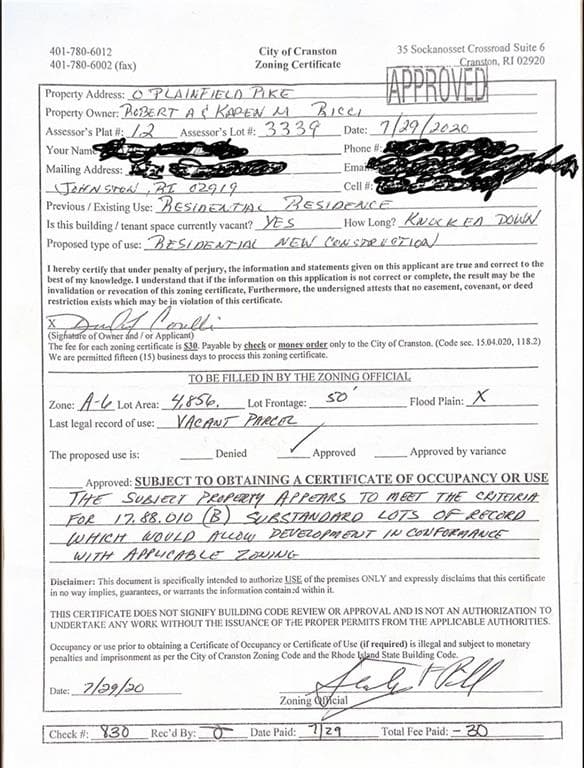 401-780-6012 City of Cranston 35 Sockanosset Crossroad Suite 6
401-780-6002 (fax) Zoning Certificate Cranston, RI 02920
APPROVED
Property Address: 0 PLAINFIELD PIKE
Property Owner: ROBERT A & KAREN M RICCI
Assessor's Plat #: 12 Assessor's Lot#: 3339 Date: 7/29/2020
Your Name Phone #:
Mailing Address: Email
JOHNSTON, RI 02919 Cell #:
Previous / Existing Use: RESIDENTIAL RESIDENCE
Is this building / tenant space currently vacant? YES How Long? KNOCKED DOWN
Proposed type of use: RESIDENTIAL NEW CONSTRUCTION
I hereby certify that under penalty of perjury, the information and statements given on this applicant are true and correct to the
best of my knowledge. I understand that if the information on this application is not correct or complete, the result may be the
invalidation or revocation of this zoning certificate, Furthermore, the undersigned attests that no easement, covenant, or deed
restriction exists which may be in violation of this certificate.
X
(Signature of Owner and / or Applicant)
The fee for each zoning certificate is $30. Payable by check or money order only to the City of Cranston. (Code sec. 15.04.020, 118.2)
We are permitted fifteen (15) business days to process this zoning certificate.
TO BE FILLED IN BY THE ZONING OFFICIAL
Zone: A-6 Lot Area: 4,856. Lot Frontage: 50' Flood Plain: X
Last legal record of use: VACANT PARCEL
The proposed use is: Denied ✓ Approved Approved by variance
Approved: SUBJECT TO OBTAINING A CERTIFICATE OF OCCUPANCY OR USE
THE SUBJECT PROPERTY APPEARS TO MEET THE CRITERIA
FOR 17.88.010 (B) SUBSTANDARD LOTS OF RECORD
WHICH WOULD ALLOW DEVELOPMENT IN CONFORMANCE
WITH APPLICABLE ZONING
Disclaimer: This document is specifically intended to authorize USE of the premises ONLY and expressly disclaims that this certificate
in no way implies, guarantees, or warrants the information contained within it.
THIS CERTIFICATE DOES NOT SIGNIFY BUILDING CODE REVIEW OR APPROVAL AND IS NOT AN AUTHORIZATION TO
UNDERTAKE ANY WORK WITHOUT THE ISSUANCE OF THE PROPER PERMITS FROM THE APPLICABLE AUTHORITIES.
Occupancy or use prior to obtaining a Certificate of Occupancy or Certificate of Use (if required) is illegal and subject to monetary
penalties and imprisonment as per the City of Cranston Zoning Code and the Rhode Island State Building Code.
Date: 7/29/20
Zoning Official
Check #: 830 Rec'd By: Date Paid: 7/29 Total Fee Paid: -30